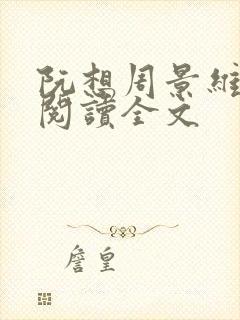 阮想周景維
閱讀全文
詹皇